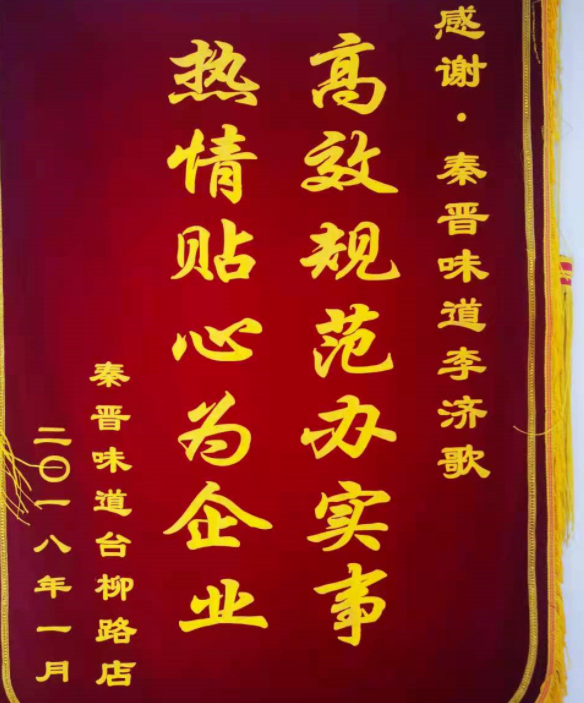 感谢·秦晋味道李济歌
高效规范办实事
热情贴心为企业
秦晋味道台柳路店
二〇一八年一月